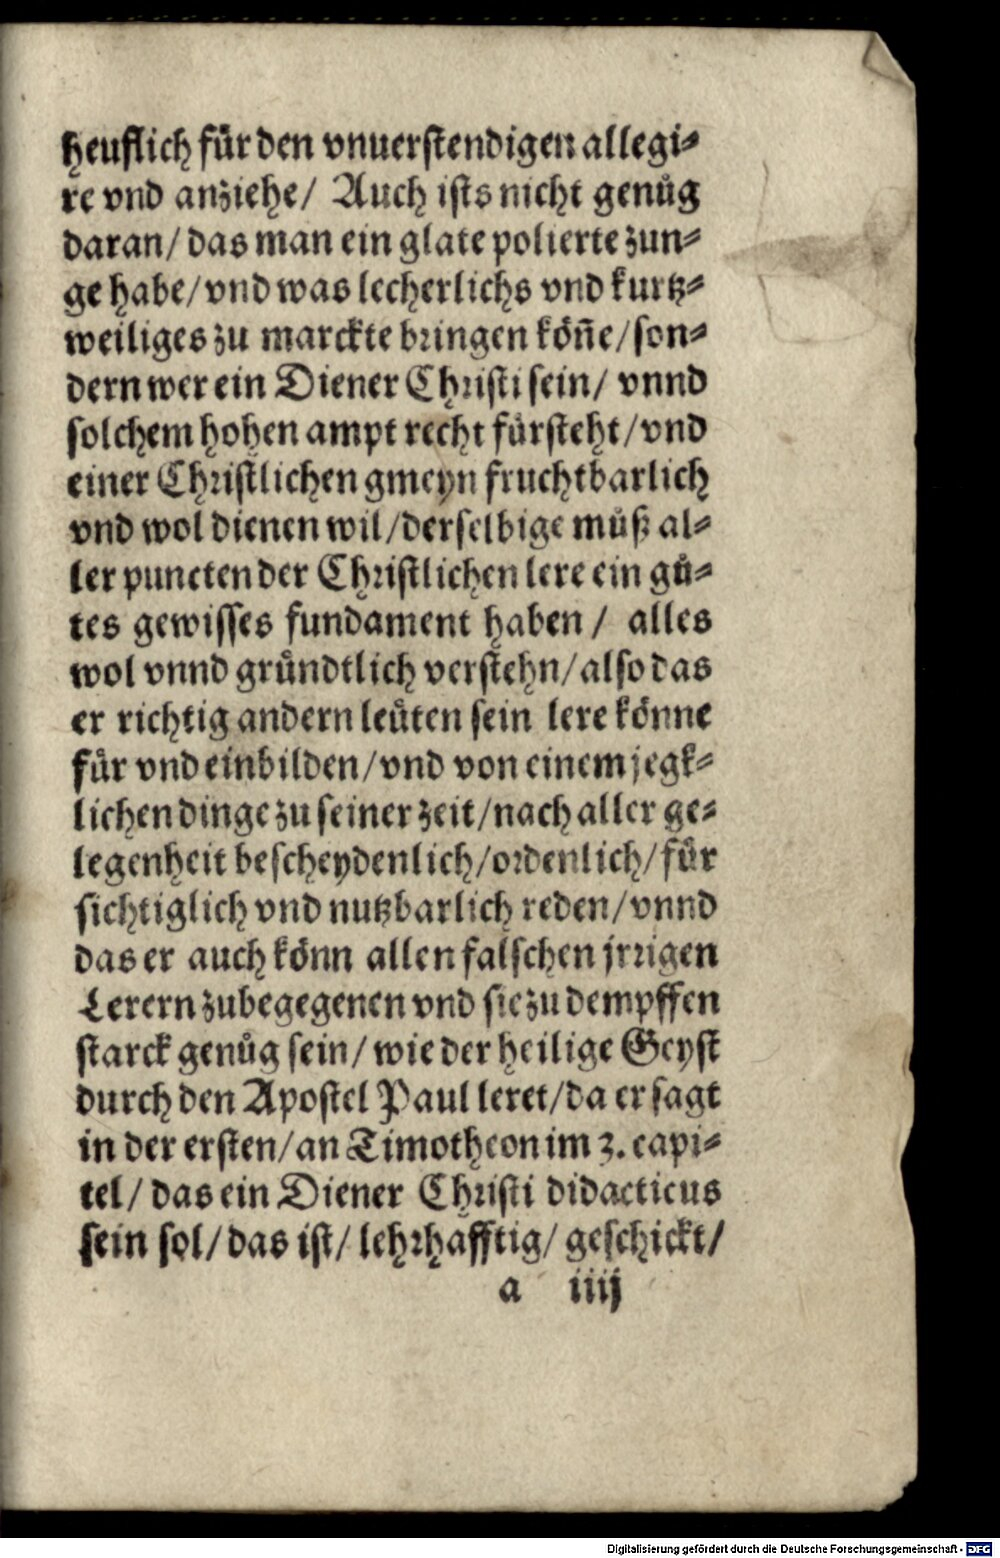 heuflich für den vnuerstendigen allegi⸗
re vnd anziehe/ Auch ists nicht genůg
daran/ das man ein glate polierte zun⸗
ge habe/ vnd was lecherlichs vnd kurtz⸗
weiliges zu marckte bringen kön̄e/ son⸗
dern wer ein Diener Christi sein/ vnnd
solchem hohen ampt recht fürsteht/ vnd
einer Christlichen gmeyn fruchtbarlich
vnd wol dienen wil/ derselbige můß al⸗
ler puncten der Christlichen lere ein gů⸗
tes gewisses fundament haben/ alles
wol vnnd gründtlich verstehn/ also das
er richtig andern leüten sein lere könne
für vnd einbilden/ vnd von einem jegk⸗
lichen dinge zu seiner zeit/ nach aller ge⸗
legenheit bescheydenlich/ ordenlich/ für
sichtiglich vnd nutzbarlich reden/ vnnd
das er auch könn allen falschen jrrigen
Lerern zubegegenen vnd sie zu dempffen
starck genůg sein/ wie der heilige Geyst
durch den Apostel Paul leret/ da er sagt
in der ersten/ an Timotheon im 3. capi⸗
tel/ das ein Diener Christi didacticus
sein sol/ das ist/ lehrhafftig/ geschickt/
a iiij
Digitalisierung gefördert durch die Deutsche Forschungsgemeinschaft - DFG